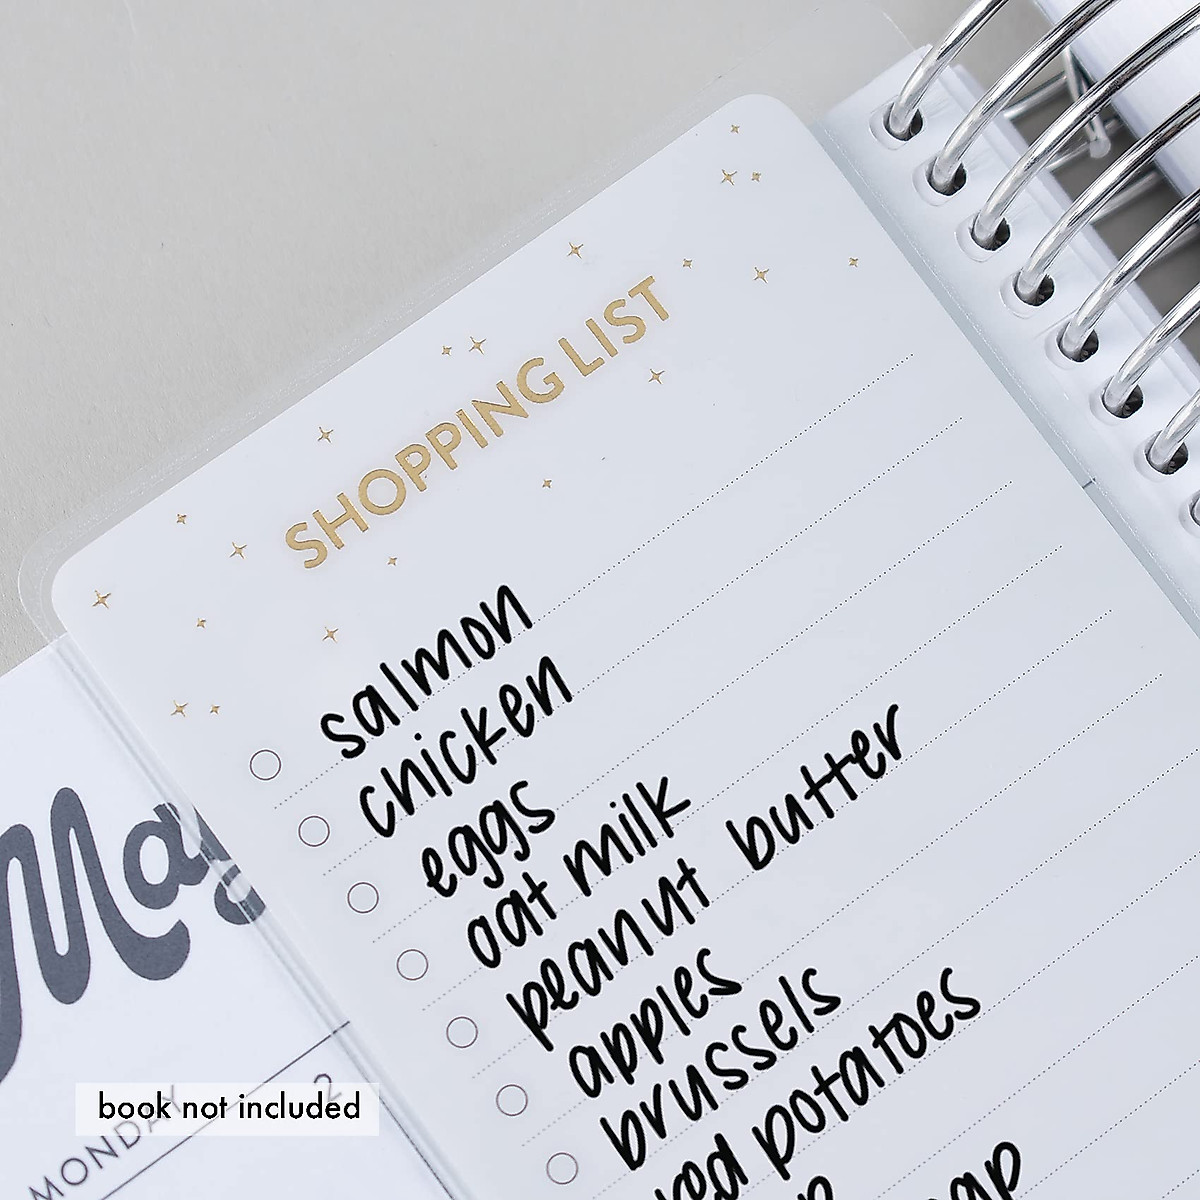 SHOPPING LIST
salmon
chicken
eggs
oat milk
peanut butter
apples
brussels
red potatoes
May
MONDAY 2
book not included